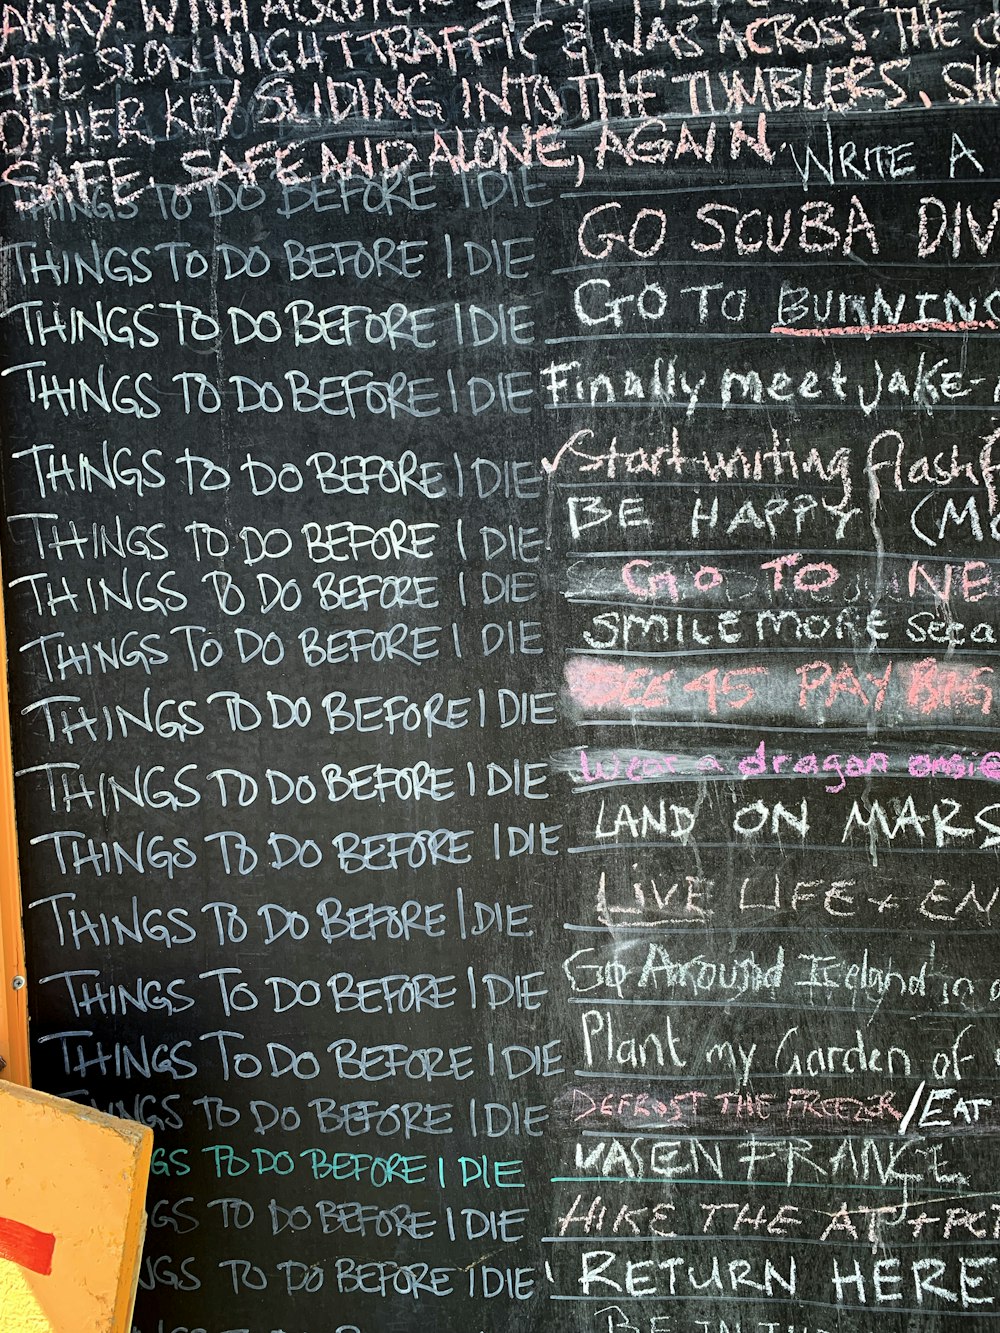 AWAY WITH
THE SLOW NIGHT TRAFFIC & WAS ACROSS. THE
OF HER KEY SLIDING INTO THE TUMBLERS, SH
SAFE. SAFE AND ALONE, AGAIN.
THINGS TO DO BEFORE I DIE WRITE A
THINGS TO DO BEFORE I DIE GO SCUBA DIV
THINGS TO DO BEFORE I DIE GO TO BURNING
THINGS TO DO BEFORE I DIE Finally meet Jake-
THINGS TO DO BEFORE I DIE ✓Start writing flash f
THINGS TO DO BEFORE I DIE BE HAPPY (M
THINGS TO DO BEFORE I DIE GO TO NE
THINGS TO DO BEFORE I DIE SMILE MORE
THINGS TO DO BEFORE I DIE SEE 45 PAY BIG
THINGS TO DO BEFORE I DIE Wear a dragon onsie
THINGS TO DO BEFORE I DIE LAND ON MARS
THINGS TO DO BEFORE I DIE LIVE LIFE + EN
THINGS TO DO BEFORE I DIE Go Around Iceland in a
THINGS TO DO BEFORE I DIE Plant my Garden of
NGS TO DO BEFORE I DIE DEFROST THE FREEZER/EAT
GS TO DO BEFORE I DIE FRANCE
GS TO DO BEFORE I DIE HIKE THE AT + PC
NGS TO DO BEFORE I DIE RETURN HERE
BE IN